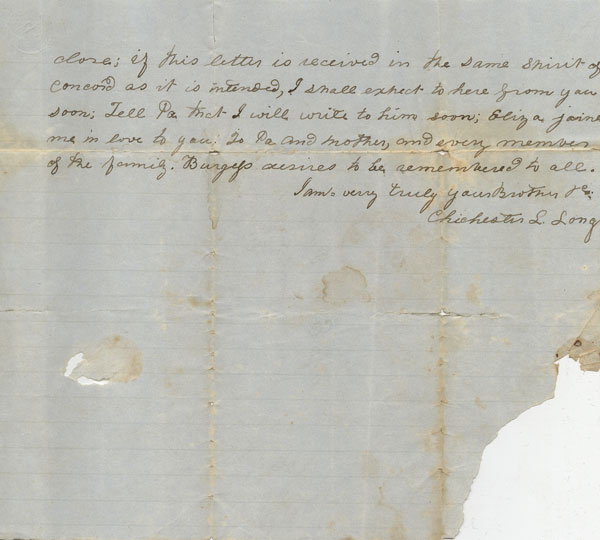 close; if this letter is received in the same spirit of
concord as it is intended, I shall expect to here from you
soon; Tell Pa that I will write to him soon; Eliza joins
me in love to you; To Pa and mother, and every member
of the family. Burgess desires to be remembered to all.
I am very truly your Brother &c.
Chichester L. Long